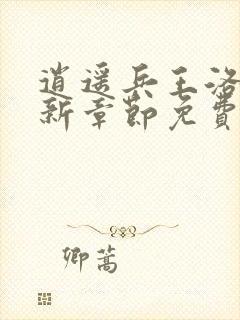 逍遥兵王洛
新章节免费
卿蒿